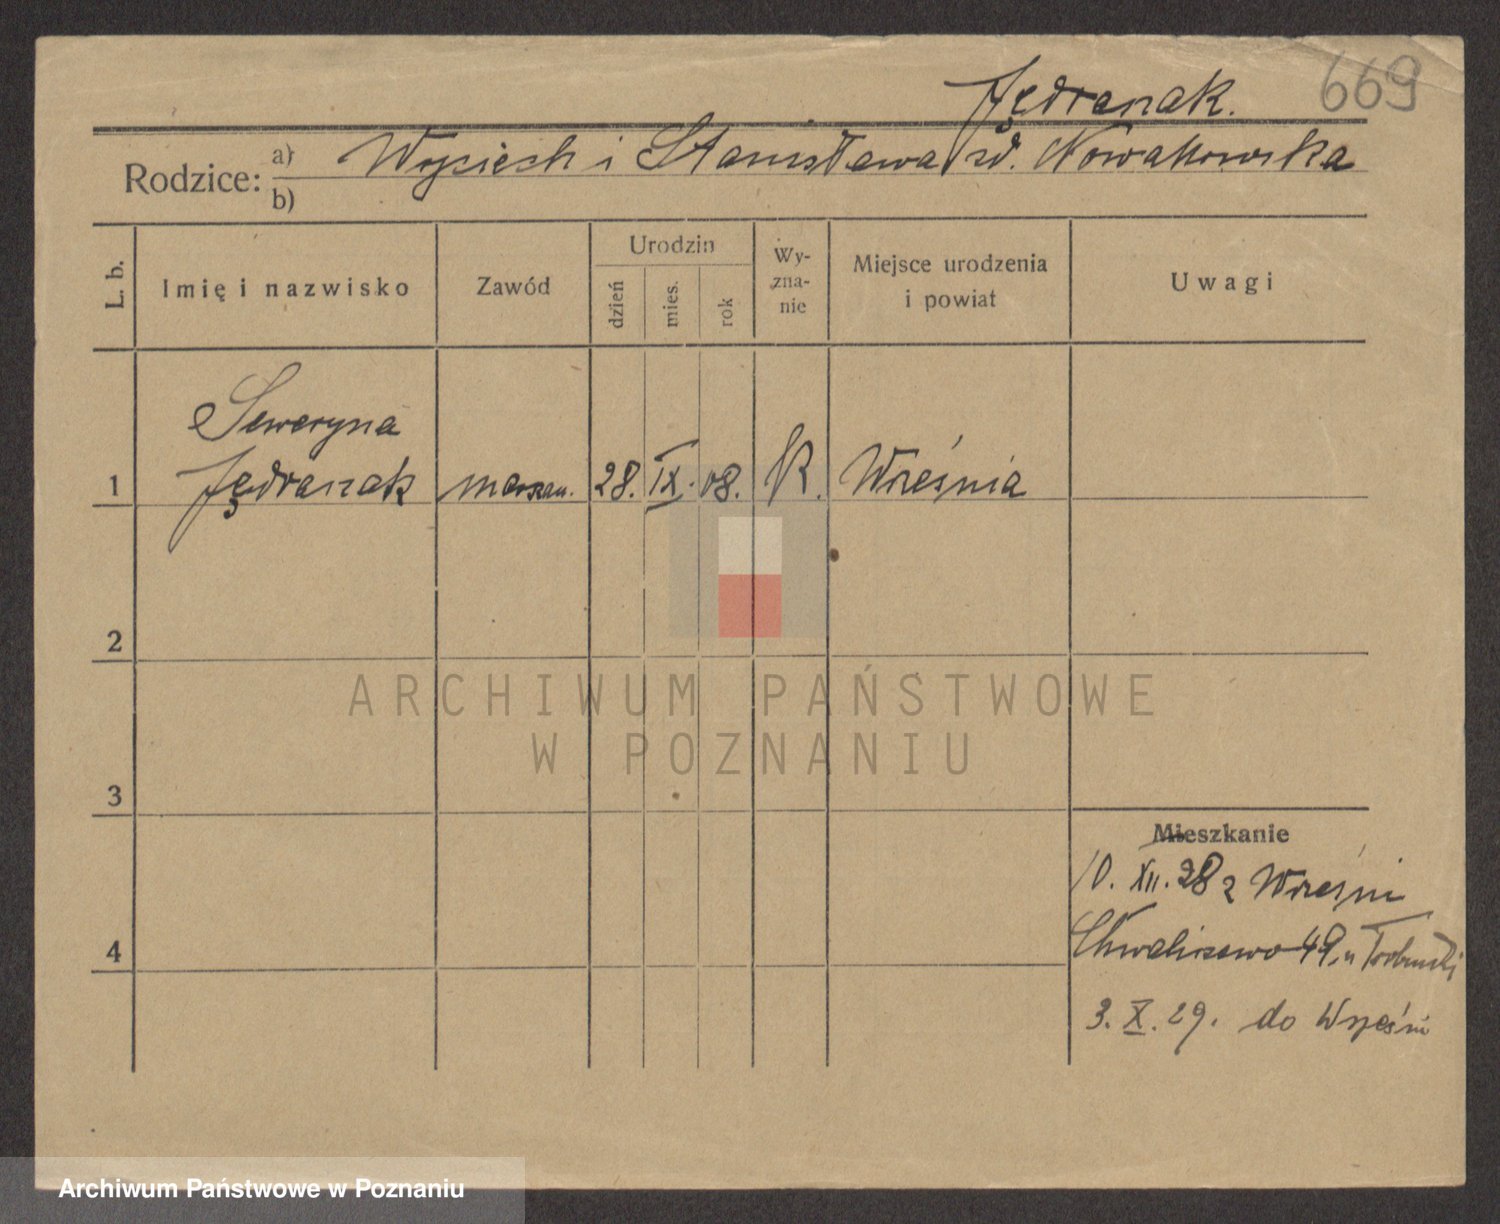 669
Jędraszak.
Rodzice: a) Wojciech i Stanisława zd. Nowakowska
b)
L. b.
Imię i nazwisko
Zawód
Urodzin
dzień
mies.
rok
Wy-
zna-
nie
Miejsce urodzenia
i powiat
Uwagi
Seweryna
1 Jędraszak 28. IX. 08. K. Września
2
3
4
Mieszkanie
10. XII. 28 z Wrześni
Chwaliszewo 49, u
3. X. 29. do Wrześni
ARCHIWUM PAŃSTWOWE
W POZNANIU
Archiwum Państwowe w Poznaniu